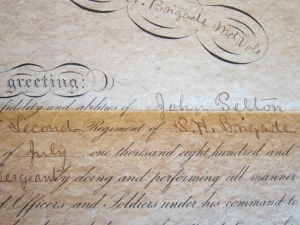 H. Brigade Md Vols
greeting:
fidelity and abilities of John Pelton
Second Regiment of P. H. Brigade
of July, one thousand eight hundred and
Sergeant by doing and performing all manner
Officers and Soldiers under his command to